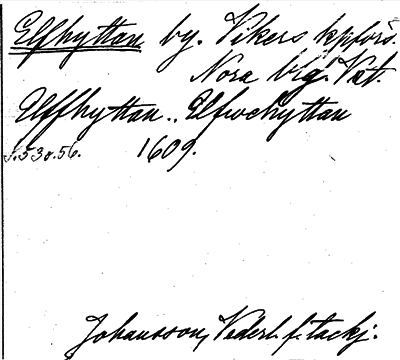 Elfhyttan by. Vikers kpförs.
Nora brg. Vat.
Elfhyttan.. Elfwehyttan
s. 530.56. 1609.
Johansson, Nederl. f. tackj.